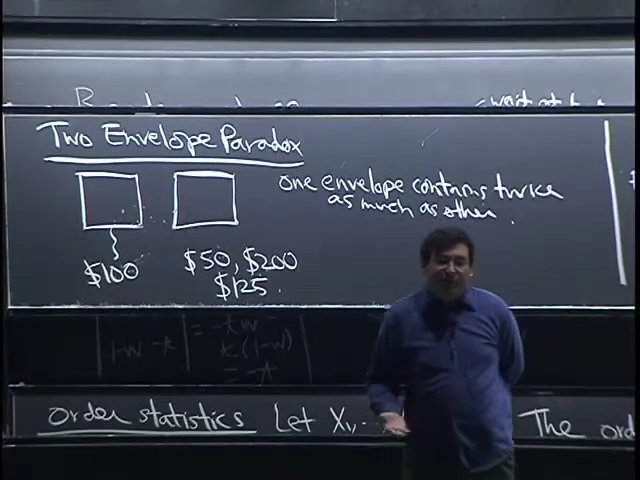 Two Envelope Paradox
one envelope contains twice
as much as other.
$100
$50, $200
$125.
= -tw
1-w -t
t(1-w)
= -t
Order statistics Let X₁, ..
The ord